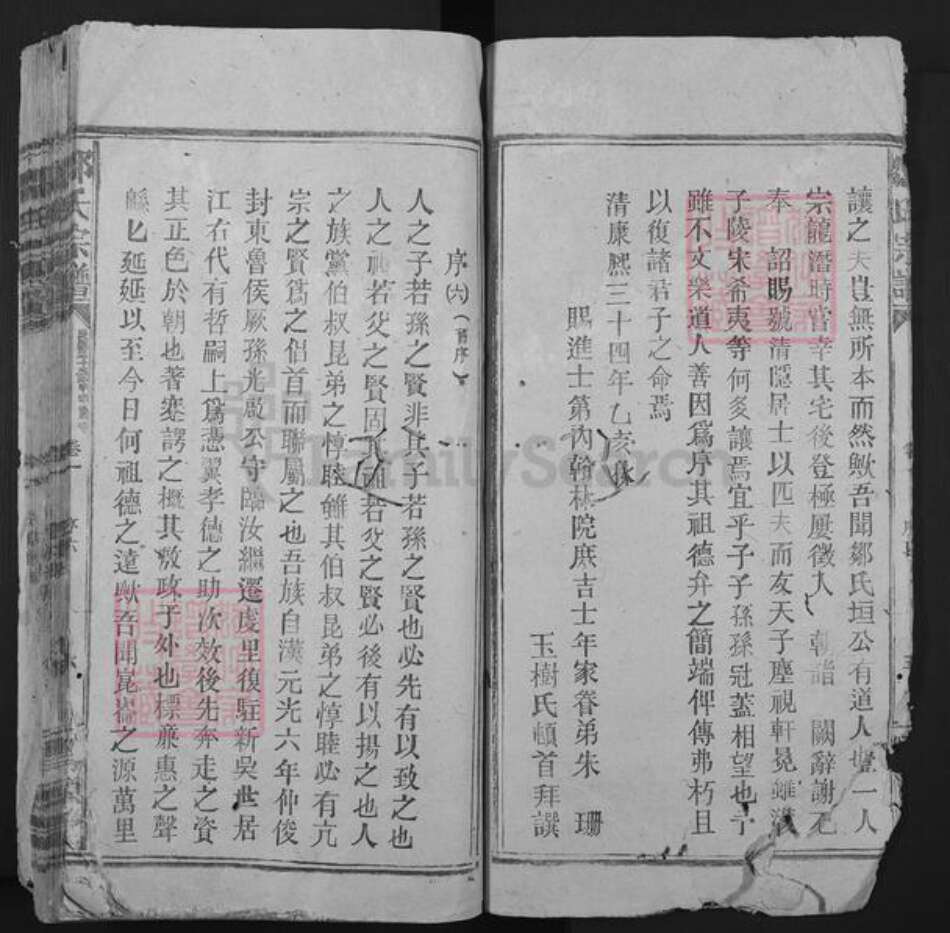 讓之夫豈無所本而然歟吾聞鄒氏垣公有道人墟一人
宗龍潛時嘗幸其宅後登極屢徵入 朝詣 闕辭謝
奉 詔賜號清隱居士以匹夫而友天子塵視軒冕雖漢
子陵宋希夷等何多讓焉宜乎子子孫孫冠蓋相望也予
雖不文樂道人善因爲序其祖德弁之簡端俾傳弗朽且
以復諸君子之命焉
清康熙三十四年乙亥秋
賜進士第內翰林院庶吉士年家眷弟朱 珊
玉樹氏頓首拜譔
序(六)(舊序)
人之子若孫之賢非其子若孫之賢也必先有以致之也
人之祖若父之賢固其祖若父之賢必後有以揚之也人
之族黨伯叔昆弟之惇睦雖其伯叔昆弟之惇睦必有亢
宗之賢爲之倡首而聯屬之也吾族自漢元光六年仲俊
封東魯侯厥孫光殷公守臨汝繼遷虔里復駐新吳世居
江右代有哲嗣上爲憑翼孝德之助次效後先奔走之資
其正色於朝也著蹇諤之概其敷政于外也標廉惠之聲
緜匕延延以至今日何祖德之遠猷音聞崑崙之源萬里
鄒氏宗譜
卷一
序六
FamilySearch